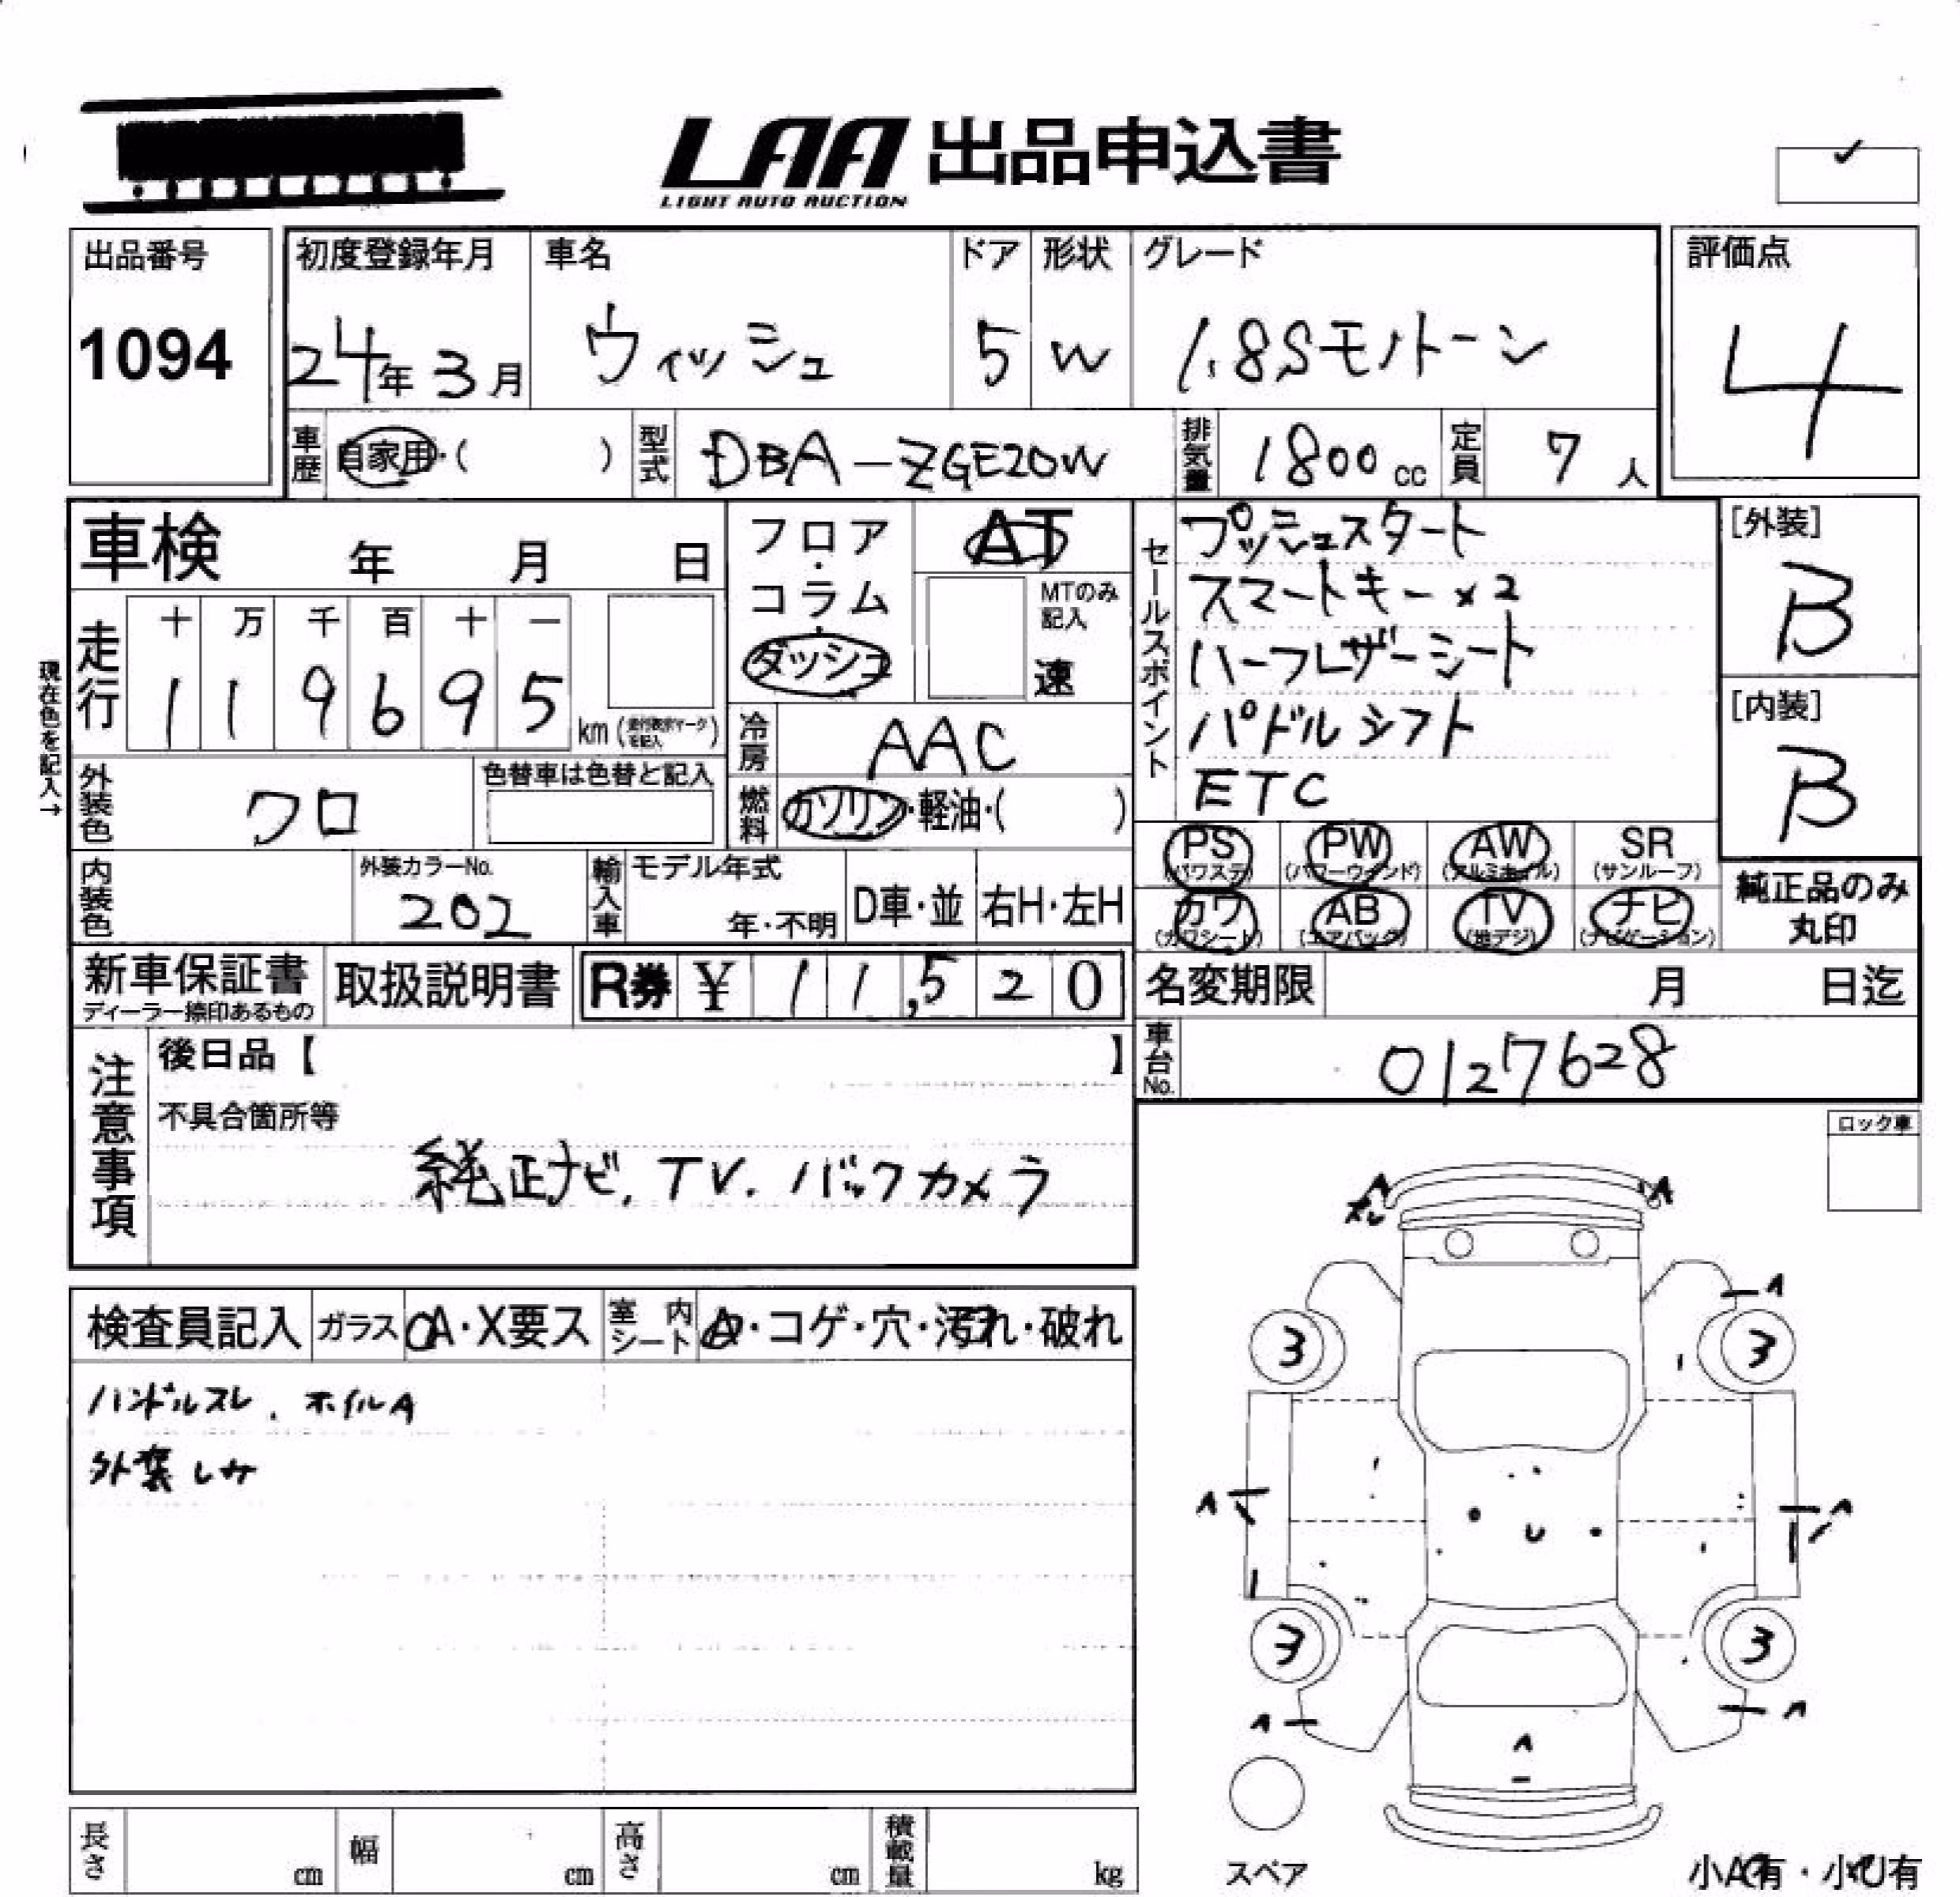 LAA 出品申込書
LIGHT AUTO AUCTION
出品番号
1094
初度登録年月 車名 ドア 形状 グレード
24年3月 ウィッシュ 5 W 1.8Sモノトーン
評価点
4
車歴 自家用・( ) 型式 DBA-ZGE20W 排気量 1800cc 定員 7人
車検 年 月 日
フロア・コラム・ダッシュ
AT
MTのみ記入
速
セールスポイント
プッシュスタート
スマートキー×2
ハーフレザーシート
パドルシフト
ETC
[外装]
B
[内装]
B
現在色を記入→
走行 十 万 千 百 十 一
1 1 9 6 9 5 km
冷房 AAC
外装色 クロ 色替車は色替と記入
燃料 ガソリン・軽油・( )
PS (パワステ) PW (パワーウィンド) AW (アルミホイル) SR (サンルーフ)
カワ (カワシート) AB (エアバック) TV (地デジ) ナビ (ナビゲーション)
純正品のみ丸印
内装色 外装カラーNo. 202 輸入車 モデル年式 年・不明 D車・並 右H・左H
新車保証書 ディーラー捺印あるもの 取扱説明書 R券 ¥ 1 1,5 2 0
名変期限 月 日迄
車台No. 0127628
注意事項
後日品【 】
不具合箇所等
純正ナビ, TV. バックカメラ
ロック車
検査員記入 ガラス A・X要ス 室内シート A・コゲ・穴・汚れ・破れ
ハンドルスレ、ホイルA
外装しみ
A A
スレ
A
3 3
A A
U
3 3
A A
A
スペア
小A有・小U有
長さ cm 幅 cm 高さ cm 積載量 kg